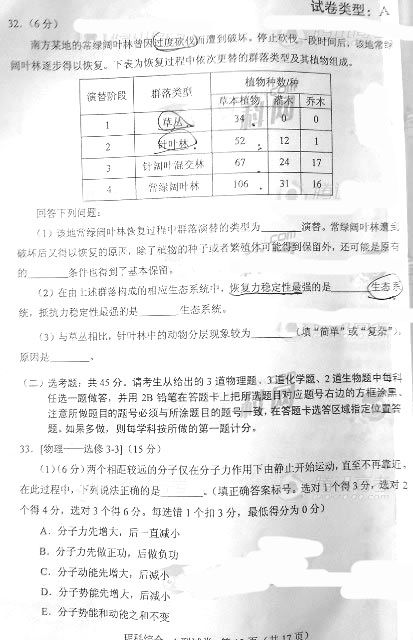 试卷类型：A
32．（6 分）
南方某地的常绿阔叶林曾因过度砍伐而遭到破坏。停止砍伐一段时间后，该地常绿
阔叶林逐步得以恢复。下表为恢复过程中依次更替的群落类型及其植物组成。
演替阶段 群落类型 植物种数/种
草本植物 灌木 乔木
1 草丛 34 0 0
2 针叶林 52 12 1
3 针阔叶混交林 67 24 17
4 常绿阔叶林 106 31 16
回答下列问题：
（1）该地常绿阔叶林恢复过程中群落演替的类型为______演替。常绿阔叶林遭到
破坏后又得以恢复的原因，除了植物的种子或者繁殖体可能得到保留外，还可能是原有
的______条件也得到了基本保留。
（2）在由上述群落构成的相应生态系统中，恢复力稳定性最强的是______生态系
统，抵抗力稳定性最强的是______生态系统。
（3）与草丛相比，针叶林中的动物分层现象较为______（填“简单”或“复杂”），
原因是______。
（二）选考题：共 45 分。请考生从给出的 3 道物理题、3 道化学题、2 道生物题中每科
任选一题做答，并用 2B 铅笔在答题卡上把所选题目对应题号右边的方框涂黑。
注意所做题目的题号必须与所涂题目的题号一致，在答题卡选答区域指定位置答
题。如果多做，则每学科按所做的第一题计分。
33．[物理——选修 3-3]（15 分）
（1）（6 分）两个相距较远的分子仅在分子力作用下由静止开始运动，直至不再靠近。
在此过程中，下列说法正确的是______。（填正确答案标号。选对 1 个得 3 分，选对 2
个得 4 分，选对 3 个得 6 分。每选错 1 个扣 3 分，最低得分为 0 分）
A．分子力先增大，后一直减小
B．分子力先做正功，后做负功
C．分子动能先增大，后减小
D．分子势能先增大，后减小
E．分子势能和动能之和不变
（共 17 页）